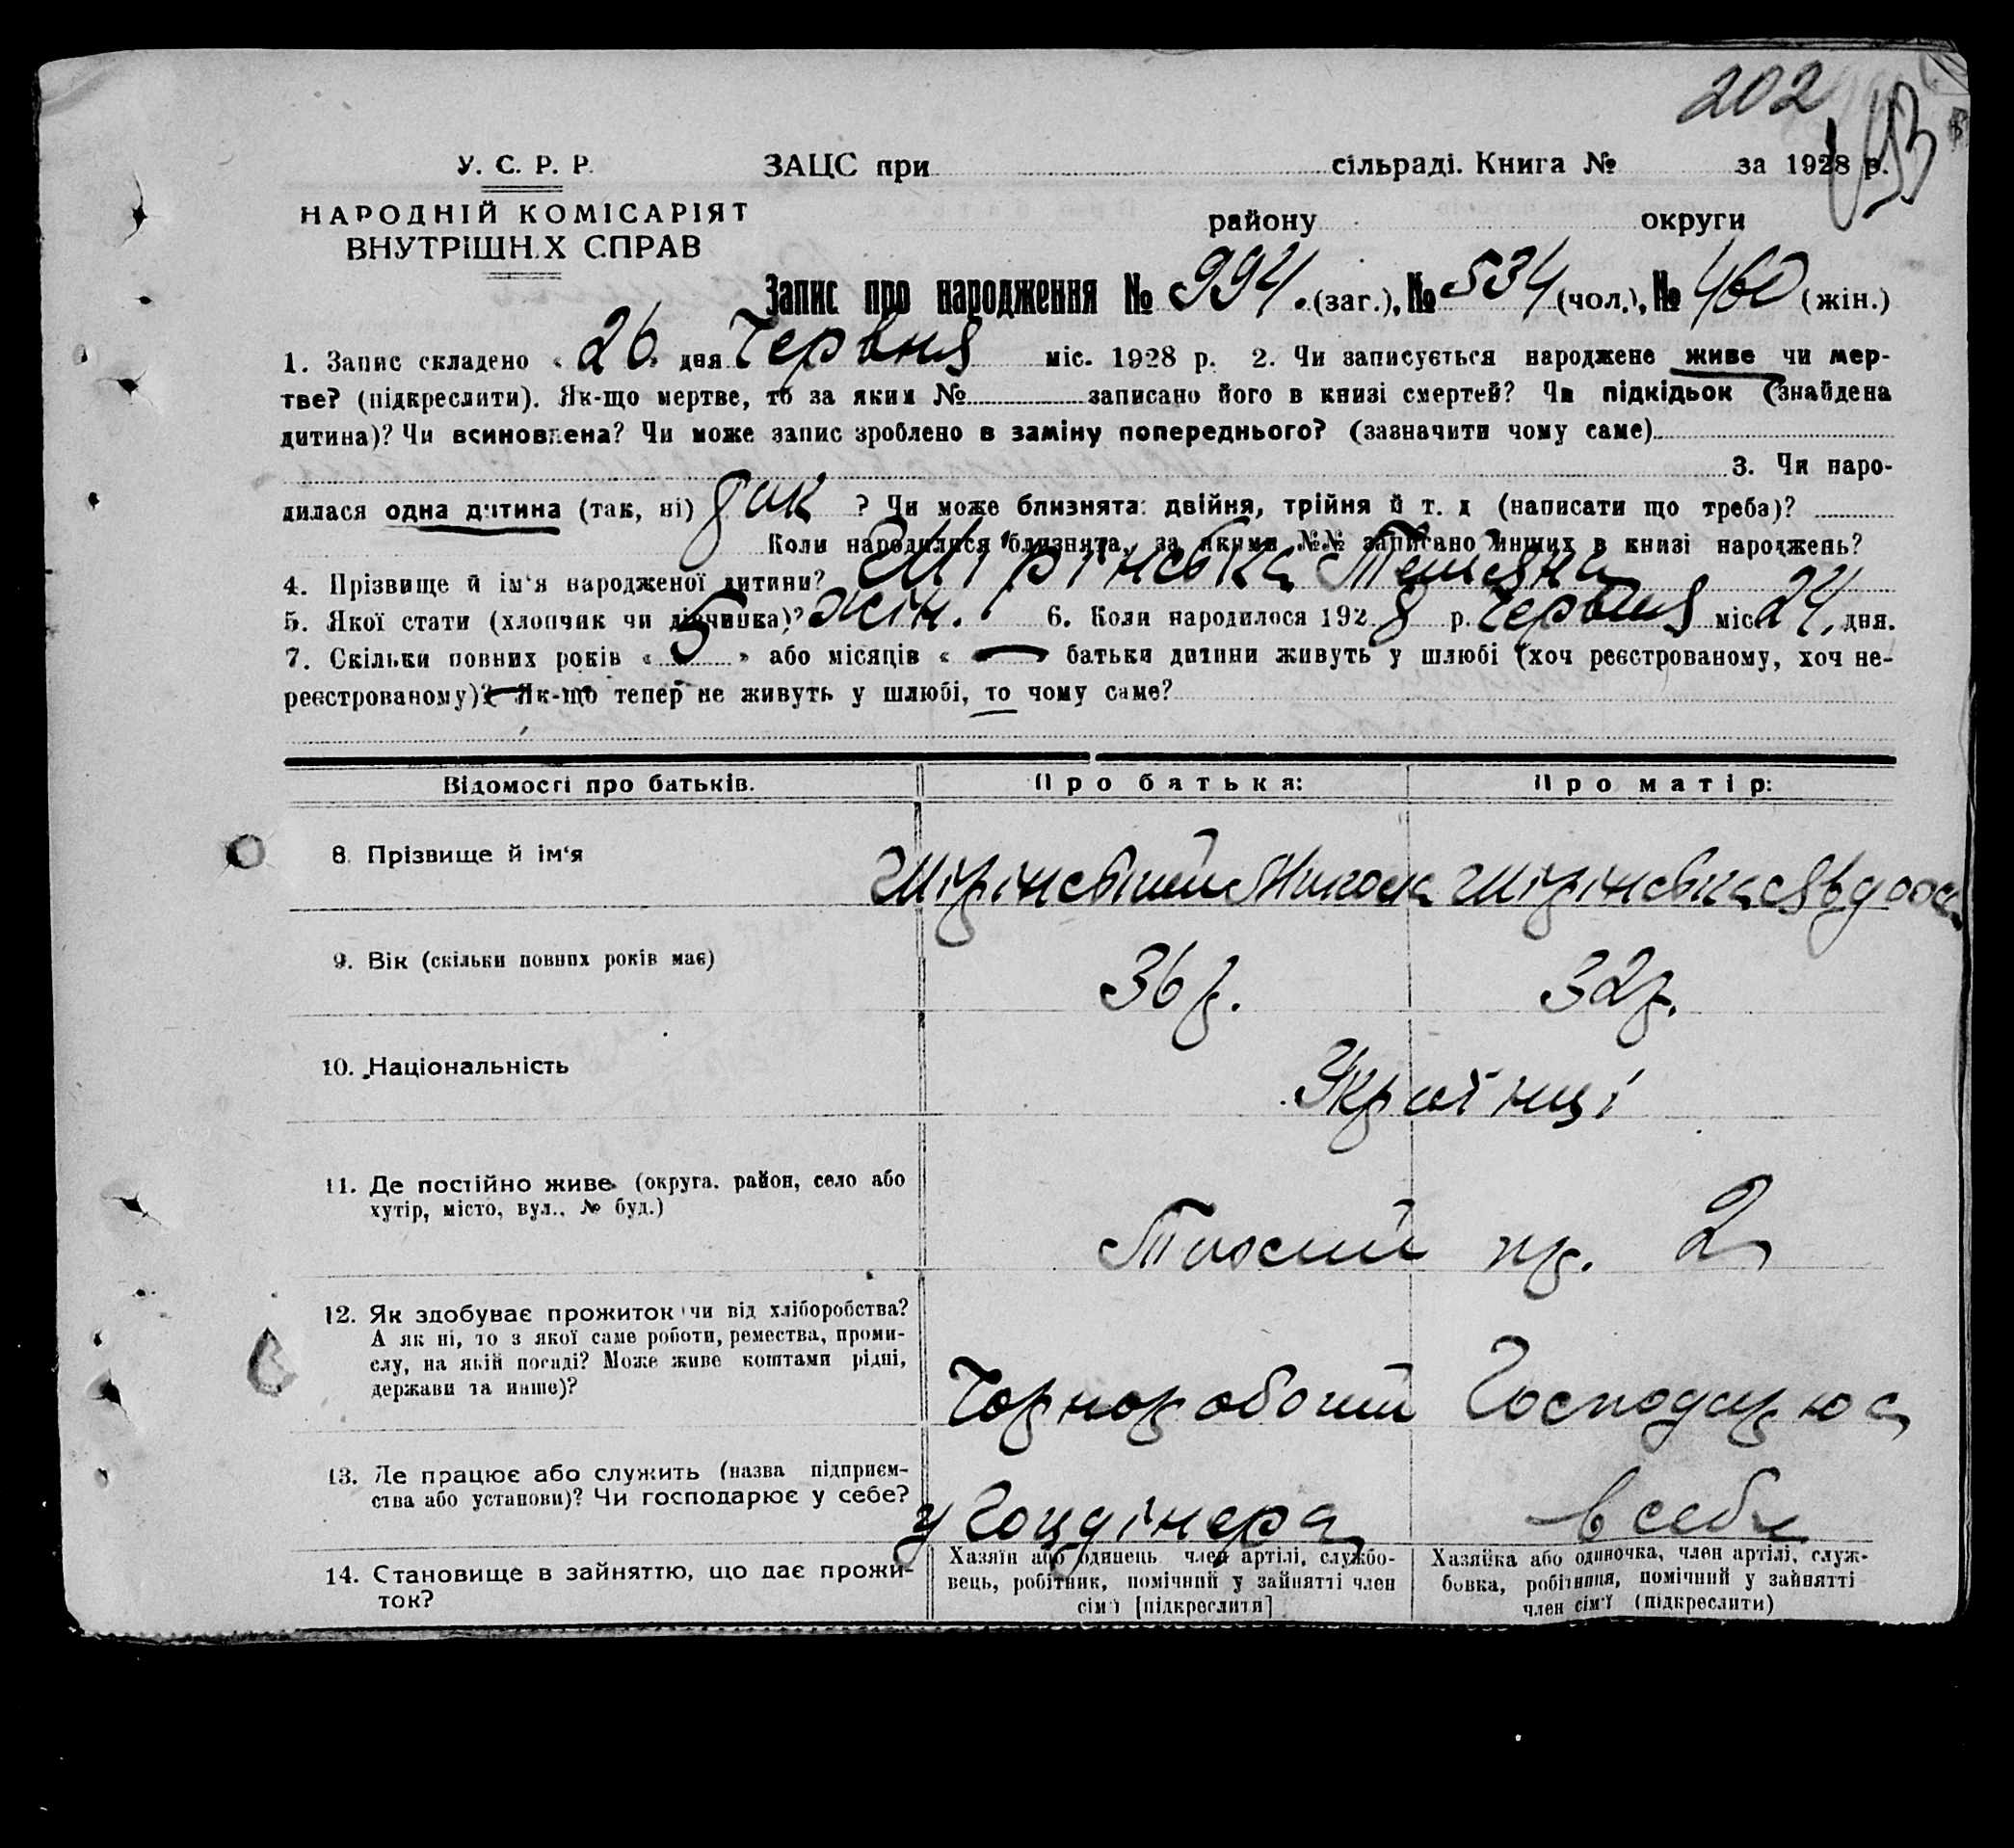 202
193
У. С. Р. Р. ЗАЦС при сільраді. Книга № за 1928 р.
НАРОДНІЙ КОМІСАРІЯТ
ВНУТРІШН.Х СПРАВ
району округи
Запис про народження № 994. (заг.), № 534 (чол.), № 460 (жін.)
1. Запис складено « 26 » дня Червня міс. 1928 р. 2. Чи записується народжене живе чи мер-
тве? (підкреслити). Як-що мертве, то за яким № записано його в книзі смертей? Чи підкідьок (знайдена
дитина)? Чи всиновлена? Чи може запис зроблено в заміну попереднього? (зазначити чому саме)
3. Чи наро-
дилася одна дитина (так, ні) так ? Чи може близнята: двійня, трійня й т. д (написати що треба)?
Коли народилися близнята, за якими №№ записано инших в книзі народжень?
4. Прізвище й ім'я народженої дитини? Шірінська Тетяна
5. Якої стати (хлопчик чи дівчинка)? жін. 6. Коли народилося 1928 р. Червня міс. 24. дня.
7. Скільки повних років « 5 » або місяців « — » батьки дитини живуть у шлюбі (хоч реєстрованому, хоч не-
реєстрованому)? Як-що тепер не живуть у шлюбі, то чому саме?
Відомості про батьків. Про батька: Про матір:
8. Прізвище й ім'я Шірінський Микола Шірінська Явдоха
9. Вік (скільки повних років має) 36 р. 32 р.
10. Національність Українці
11. Де постійно живе (округа. район, село або
хутір, місто, вул., № буд.)
Тихий пр. 2
12. Як здобуває прожиток чи від хліборобства?
А як ні, то з якої саме роботи, ремества, проми-
слу, на якій посаді? Може живе коштами рідні,
держави та инше)?
Чорноробочий Господарює
13. Де працює або служить (назва підприєм-
ства або установи)? Чи господарює у себе?
у в себе
14. Становище в зайняттю, що дає прожи-
ток?
Хазяїн або одинець член артілі, службо-
вець, робітник, помічний у зайнятті член
сім'ї [підкреслити]
Хазяйка або одиночка, член артілі, служ-
бовка, робітниця, помічний у зайнятті
член сім'ї (підкреслити)